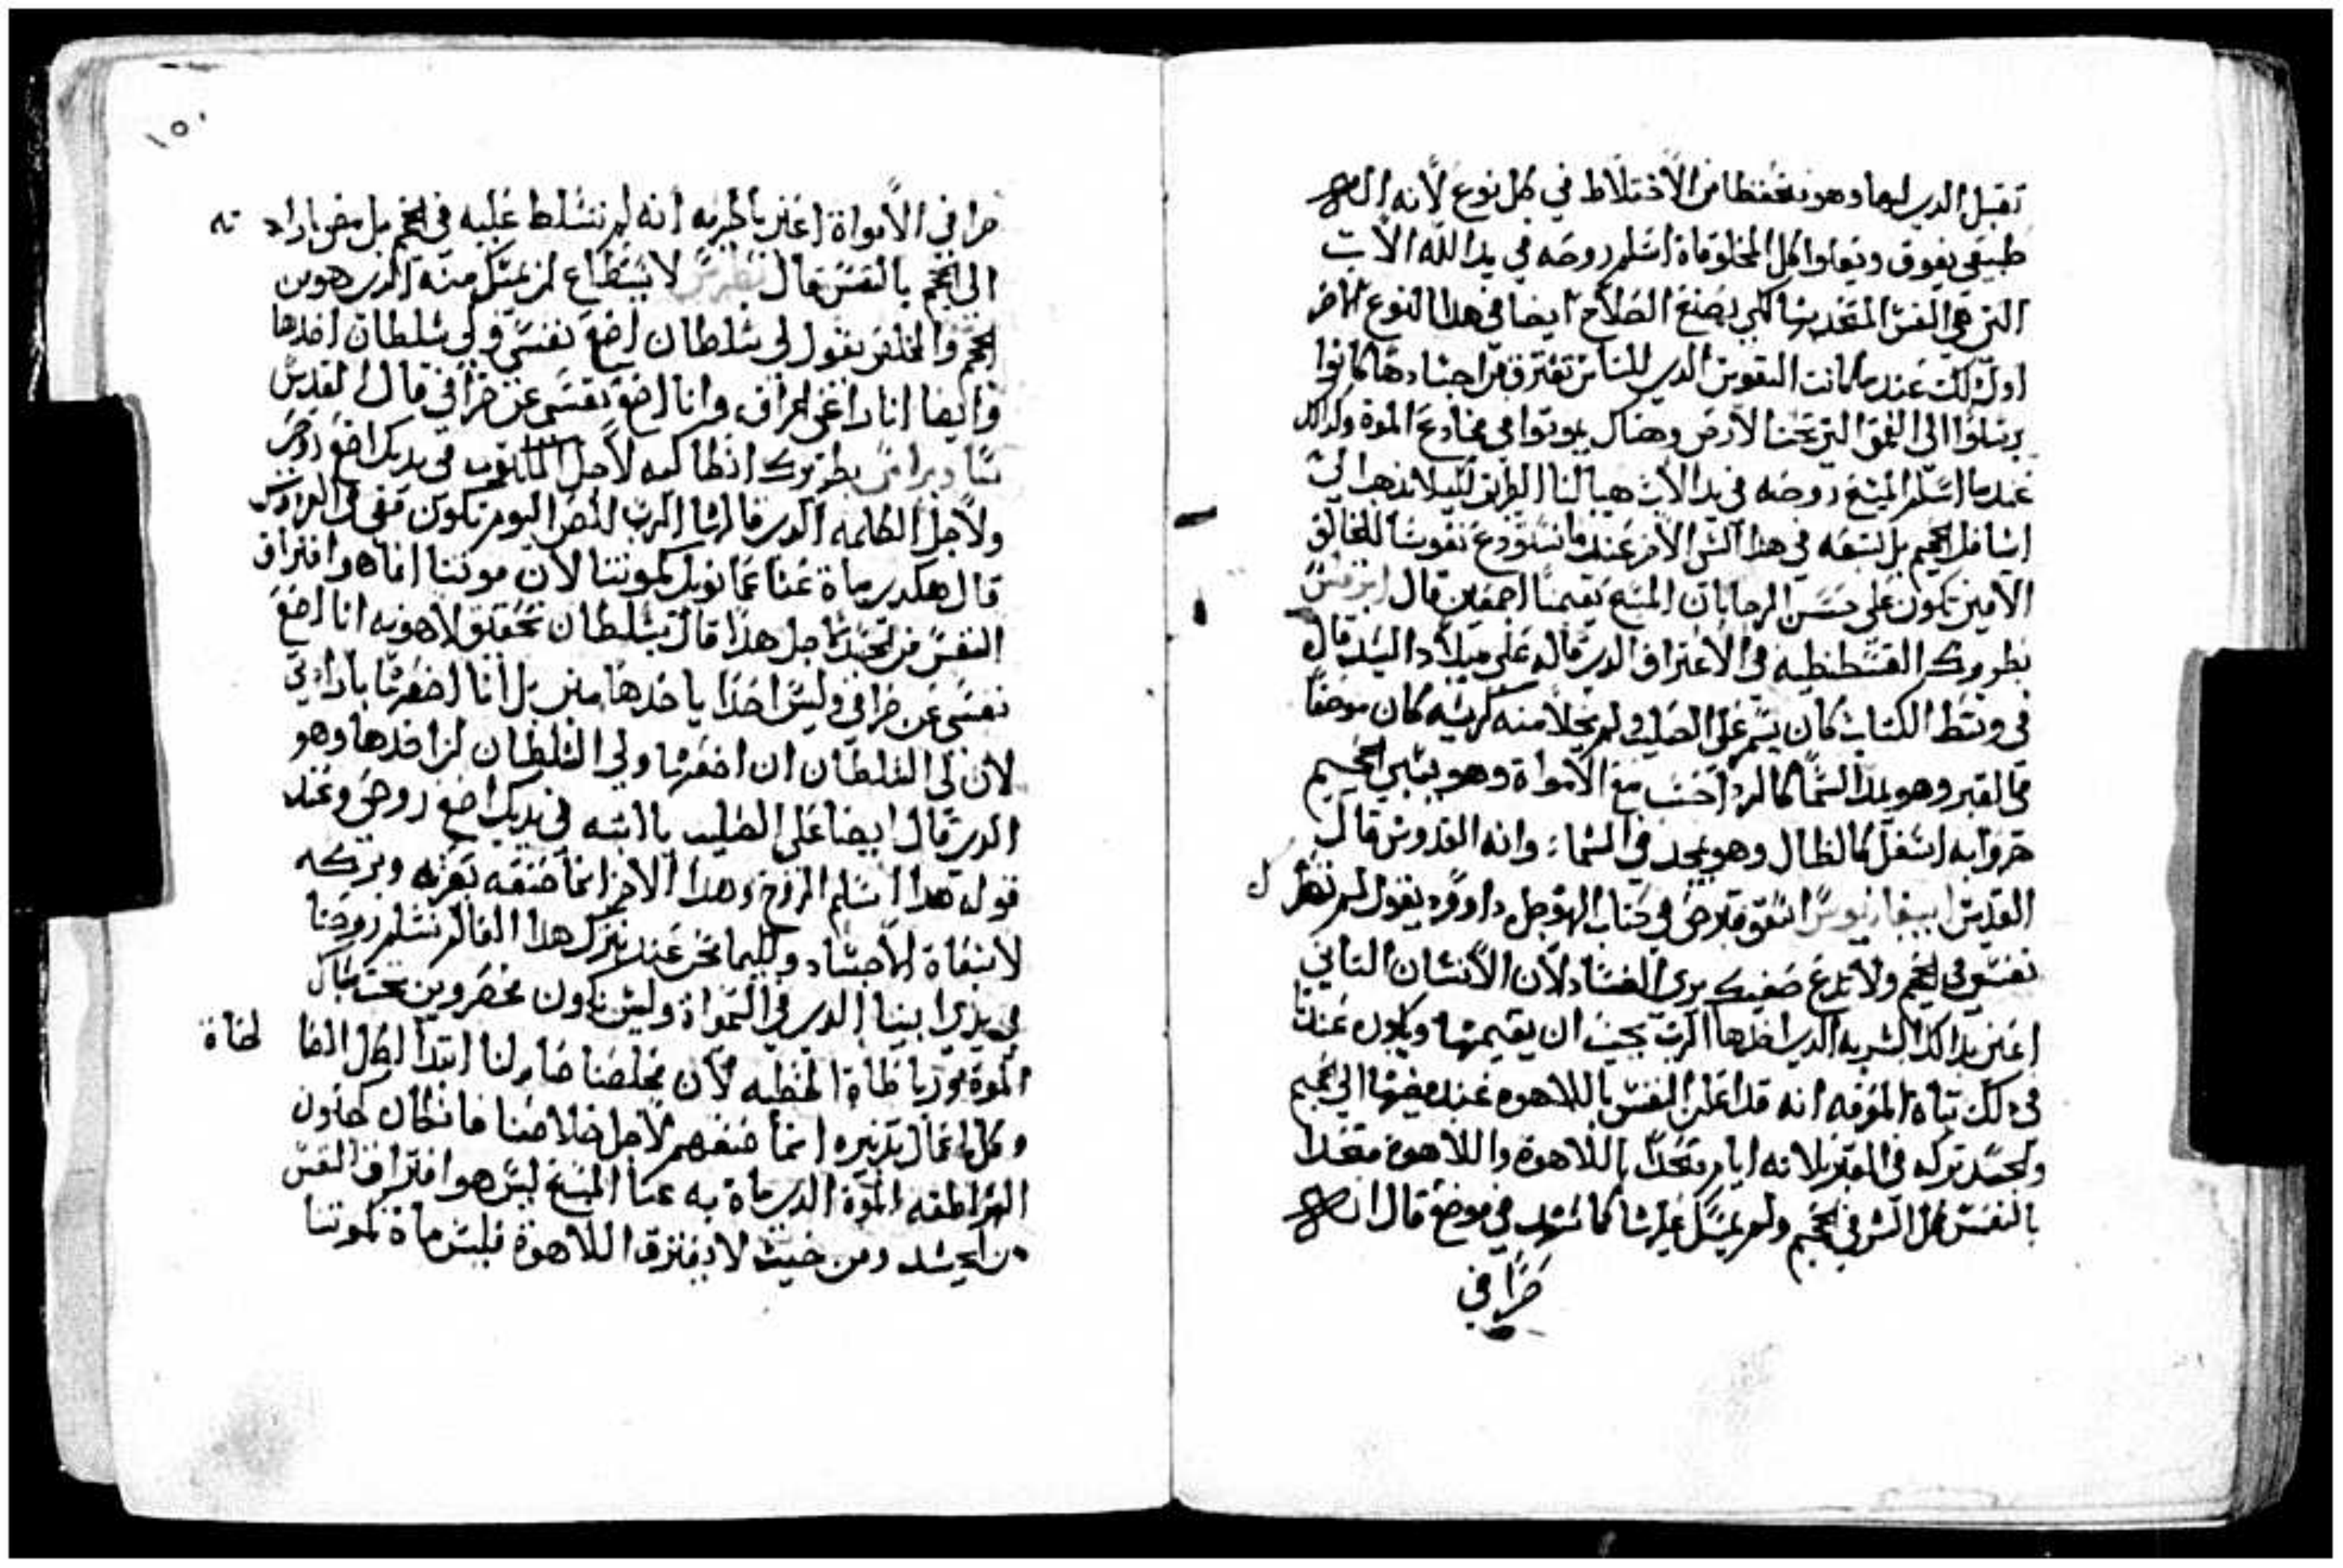 تقبل الدي لها وهو تحفظا من الاختلاط في كل نوع لأنه اله
طبيعي يفوق ويعلوا كل المخلوقاة اسلم روحه في يد الله الاب
التي هي النفس المتحد بها لكي يصنع الصلاح ايضا في هدا النوع الاخر
اولك لكن عندما كانت النفوس الدي للناس تفترق من اجسادها كانوا
يرسلوا الى العمق التي تحت الارض وهناك يموتوا في مخادع الموة وكدلك
عندما اسلم المسيح روحه في يد الاب هيا لنا الطريق لكيلا ندهب الى
اسافل الجحيم بل نتبعه في هدا الشي الاخر عندما نستودع نفوسنا للخالق
الامين نكون على حسن الرجا بان المسيح يقيمنا اجمعين قال
بطريرك القسطنطيه في الاعتراف الدي قاله على ميلاد السيد قال
في وسط الكتاب كان يسمر على الصليب ولم يخلا منه كرسيه كان موضعا
في القبر وهو يمد السما كالردا حسب مع الامواة وهو يسبي الجحيم
اسفل كالظال وهو يمجد في السما وانه القدوس قال
القديس في كتاب داوود يقول لم تهمل
نفسي في الجحيم ولا تدع صفيك يرى الفساد لان الانسان التاني
اعني بدالك البشريه الدي اخدها الرب يجب ان يقيمها ويكون عندنا
في دلك تباة المعرفه انه قد اعلن النفس باللاهوة عند مضيها الى الجحيم
والجسد تركه في القبر لانه ايام متحدا باللاهوة واللاهوة متحدا
بالنفس كل الشر في الجحيم ولم يمسك عليها كما شهد في موضع قال انه
حرا في
١٥٠
حرا في الامواة اعني بالحريه انه لم تتسلط عليه في الجحيم بل مضى باراد ته
الى الجحيم بالنفس قال بطرس لا يستطاع ان يمسك منه الدي هو من
الجحيم والمخلص يقول لي سلطان اضع نفسي ولي سلطان اخدها
وايضا انا راعي الخراف وانا اضع نفسي عن خرافي قال القديس
بطريرك انطاكيه لاجل المكتوب في يديك اضع روحي
ولاجل الكلمه الدي قالها الرب للص اليوم تكون معي في الفردوس
قال هكدى ماة عنا عمانويل كموتنا لان موتنا انما هو افتراق
النفس من الجسد لاجل هدا قال بسلطان تحقيق لاهوته انا اضع
نفسي عن خرافي وليس احدا ياخدها مني بل انا اضعها بارادتي
لان لي السلطان ان اضعها ولي السلطان ان اخدها وهو
الدي قال ايضا على الصليب يا ابته في يديك اضع روحي وعند
قوله هدا اسلم الروح وهدا الاخر انما صنعه وتركه
لانبعاة الاجساد ولكيما نحن عند نترك هدا العالم نسلم روحنا
في يدي ابينا الدي في السمواة وليس نكون محصورين تحت
الموة برباطاة الخطيه لان مخلصنا صار لنا ابتدا لكل الخا لخاة
وكل اعمال تدبيره انما صنعهم لاجل خلاصنا فان كان كحدون
الهراطقه الموة الدي ماة به عنا المسيح ليس هو افتراق النفس
من الجسد ومن حيث لا يفترق اللاهوة فليس ماة كموتنا